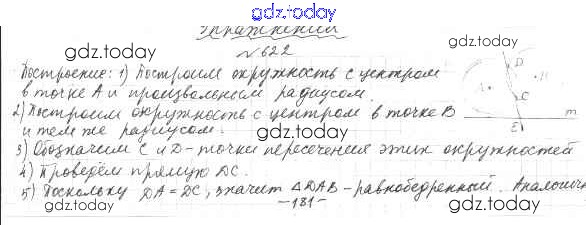 gdz.today
Упражнения
№ 622
gdz.today
Построение: 1) Построим окружность с центром
в точке А и произвольным радиусом.
2) Построим окружность с центром в точке В
и тем же радиусом.
gdz.today
3) Обозначим С и D - точки пересечения этих окружностей
4) Проведём прямую DC.
5) Поскольку DA = DC, значит △DAB - равнобедренный. Аналогичн
-181-
gdz.today
gdz.today
gdz.today
gdz.today
D
A
C
E
m